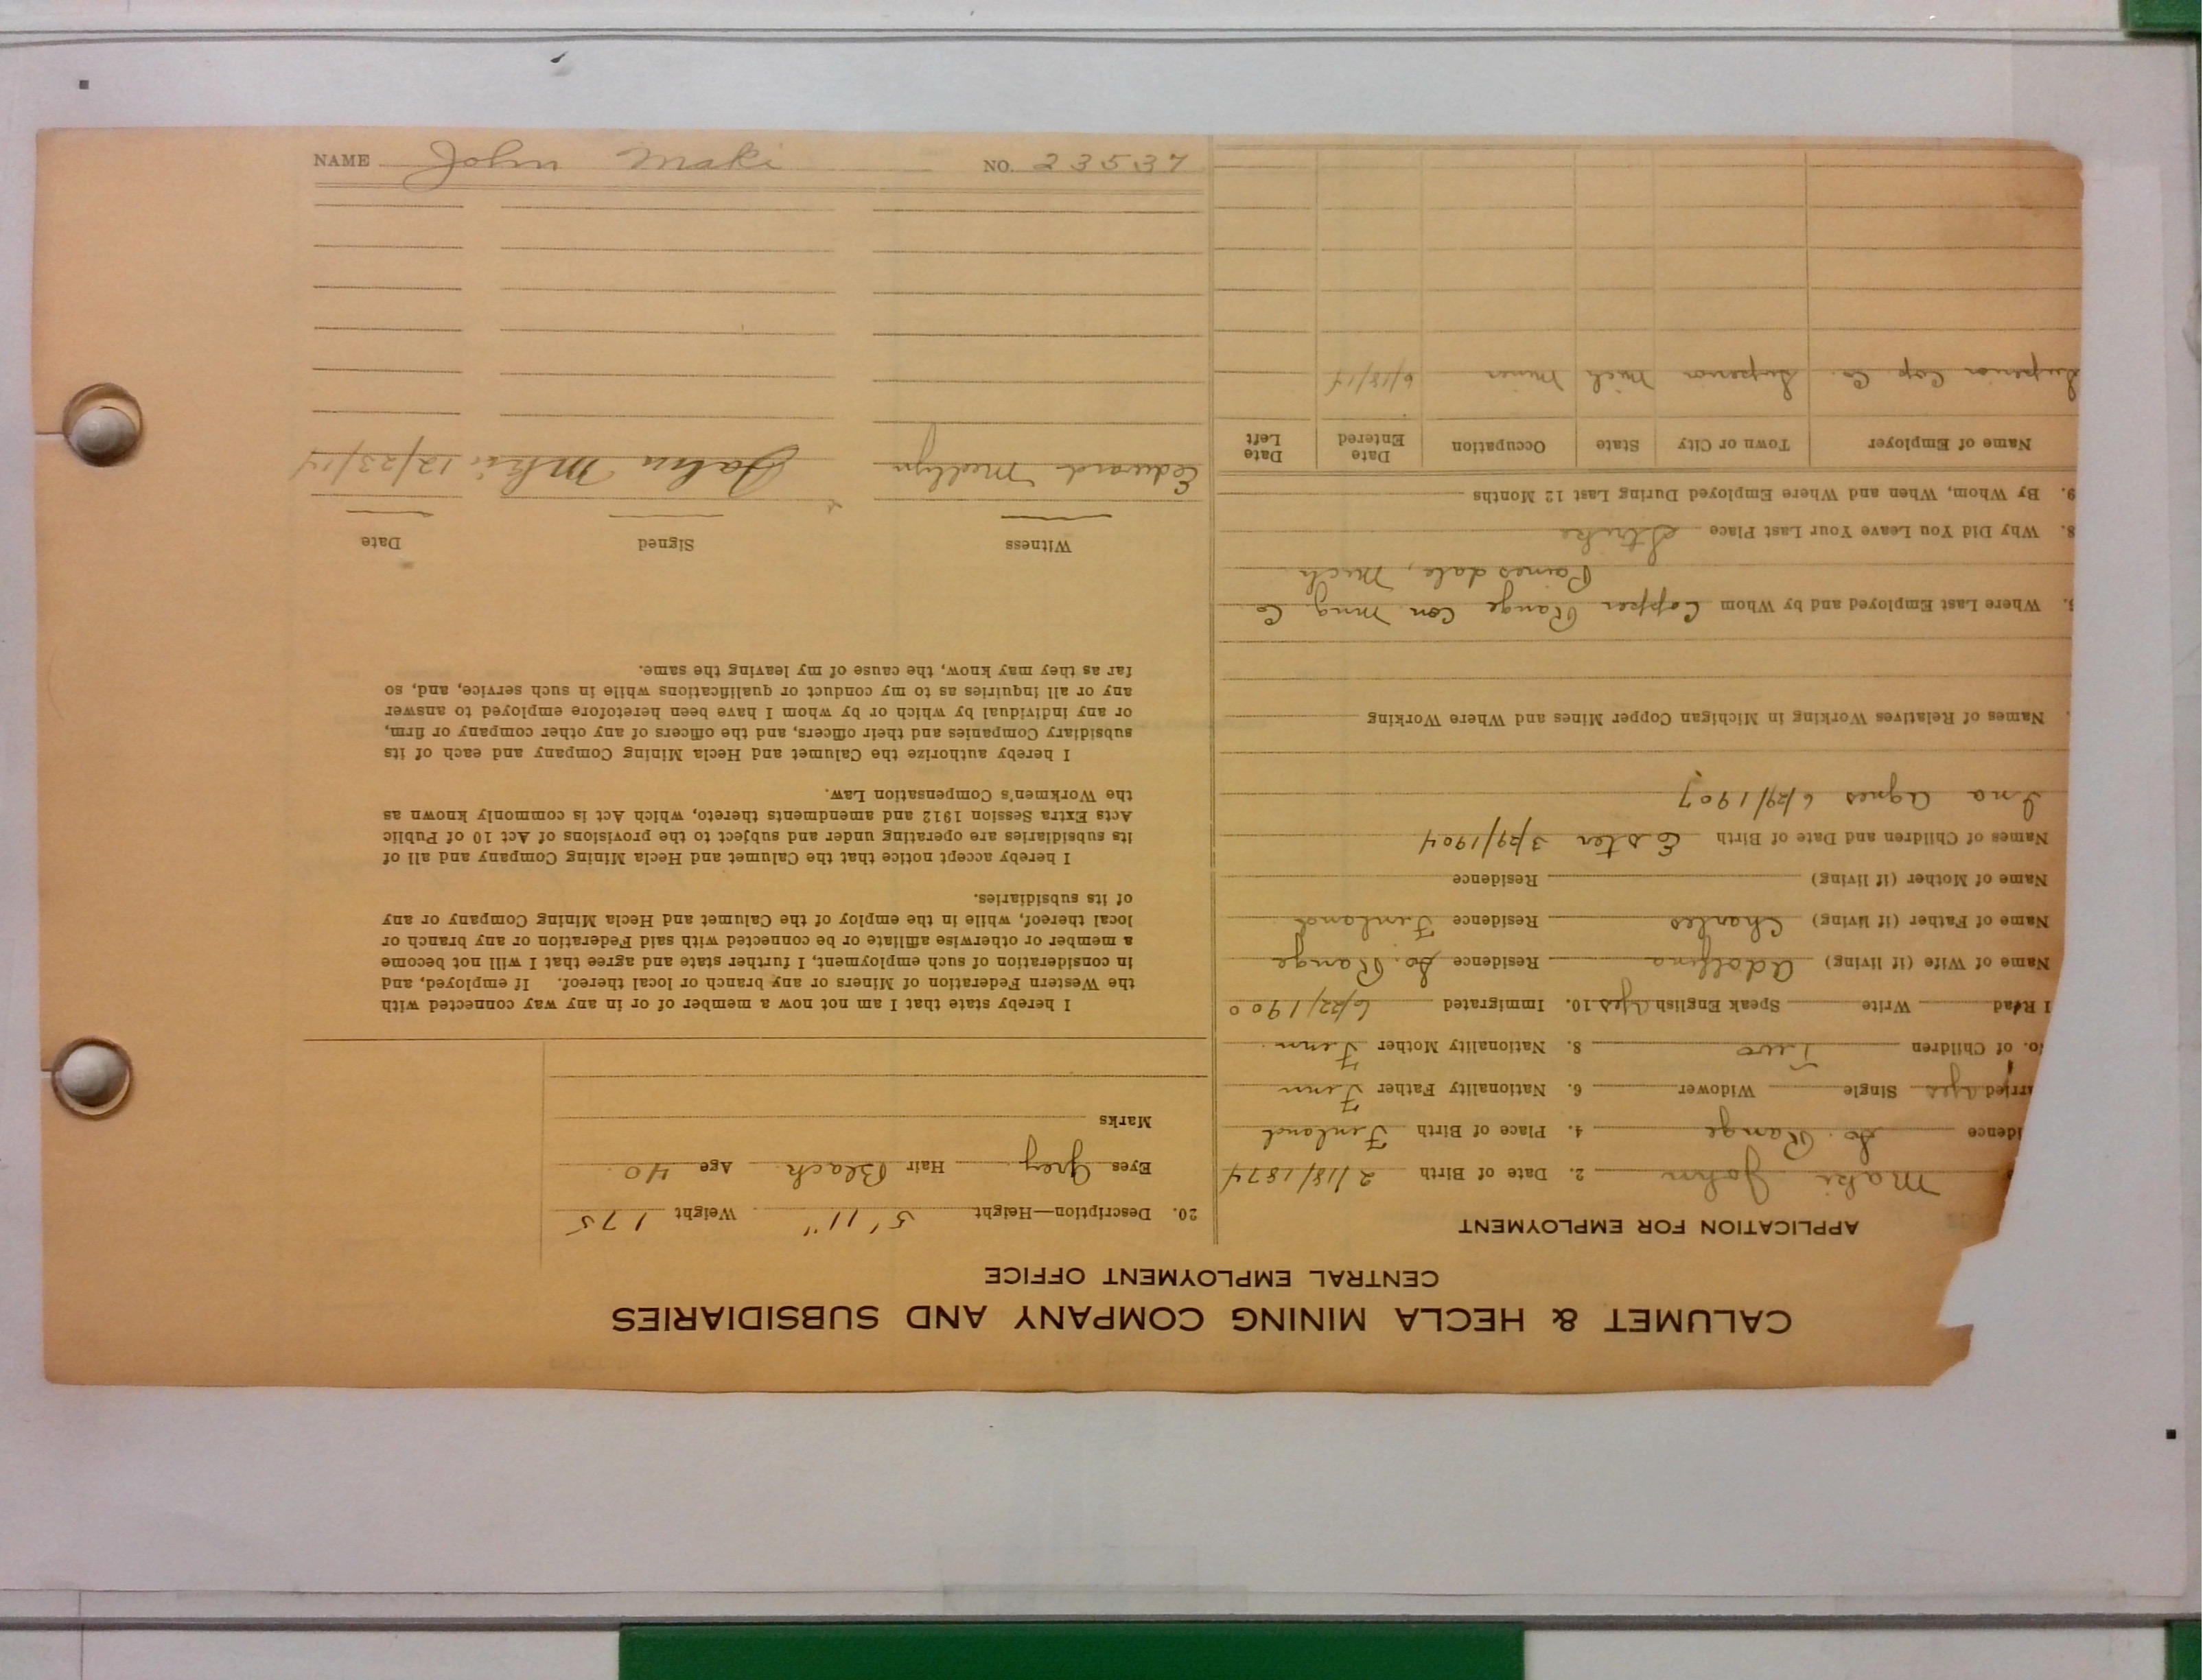 CALUMET & HECLA MINING COMPANY AND SUBSIDIARIES
CENTRAL EMPLOYMENT OFFICE
APPLICATION FOR EMPLOYMENT
Maki John 2. Date of Birth 2/18/1874
idence So. Range 4. Place of Birth Finland
arried yes Single Widower 6. Nationality Father Finn
o. of Children Two 8. Nationality Mother Finn
Read Write Speak English yes 10. Immigrated 6/22/1900
Name of Wife (if living) Adolfina Residence So. Range
Name of Father (if living) Charles Residence Finland
Name of Mother (if living) Residence
Names of Children and Date of Birth Ester 3/29/1904
Ina Agnes 6/29/1907
Names of Relatives Working in Michigan Copper Mines and Where Working
Where Last Employed and by Whom Copper Range Con Mng Co
Painesdale, Mich
8. Why Did You Leave Your Last Place Strike
9. By Whom, When and Where Employed During Last 12 Months
Name of Employer Town or City State Occupation Date Entered Date Left
Superior Cop. Co. Superior Mich Miner 6/18/14
20. Description—Height 5' 11" Weight 175
Eyes Grey Hair Black Age 40
Marks
I hereby state that I am not now a member of or in any way connected with
the Western Federation of Miners or any branch or local thereof. If employed, and
in consideration of such employment, I further state and agree that I will not become
a member or otherwise affiliate or be connected with said Federation or any branch or
local thereof, while in the employ of the Calumet and Hecla Mining Company or any
of its subsidiaries.
I hereby accept notice that the Calumet and Hecla Mining Company and all of
its subsidiaries are operating under and subject to the provisions of Act 10 of Public
Acts Extra Session 1912 and amendments thereto, which Act is commonly known as
the Workmen's Compensation Law.
I hereby authorize the Calumet and Hecla Mining Company and each of its
subsidiary Companies and their officers, and the officers of any other company or firm,
or any individual by which or by whom I have been heretofore employed to answer
any or all inquiries as to my conduct or qualifications while in such service, and, so
far as they may know, the cause of my leaving the same.
Witness Signed Date
Edward John 12/23/14
NAME John Maki NO. 23537